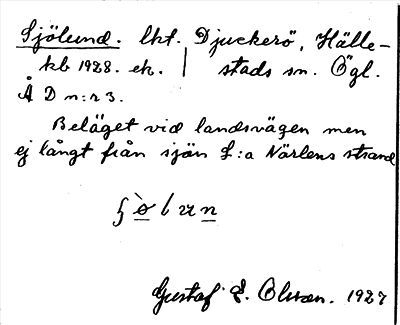 Sjölund. lht. Djuckerö, Hälle-
kb 1928. ek. | stads sn. Ögl.
Å D n:r 3.
Beläget vid landsvägen men
ej långt från sjön L:a Närlens strand
Gustaf E. Olsson. 1927